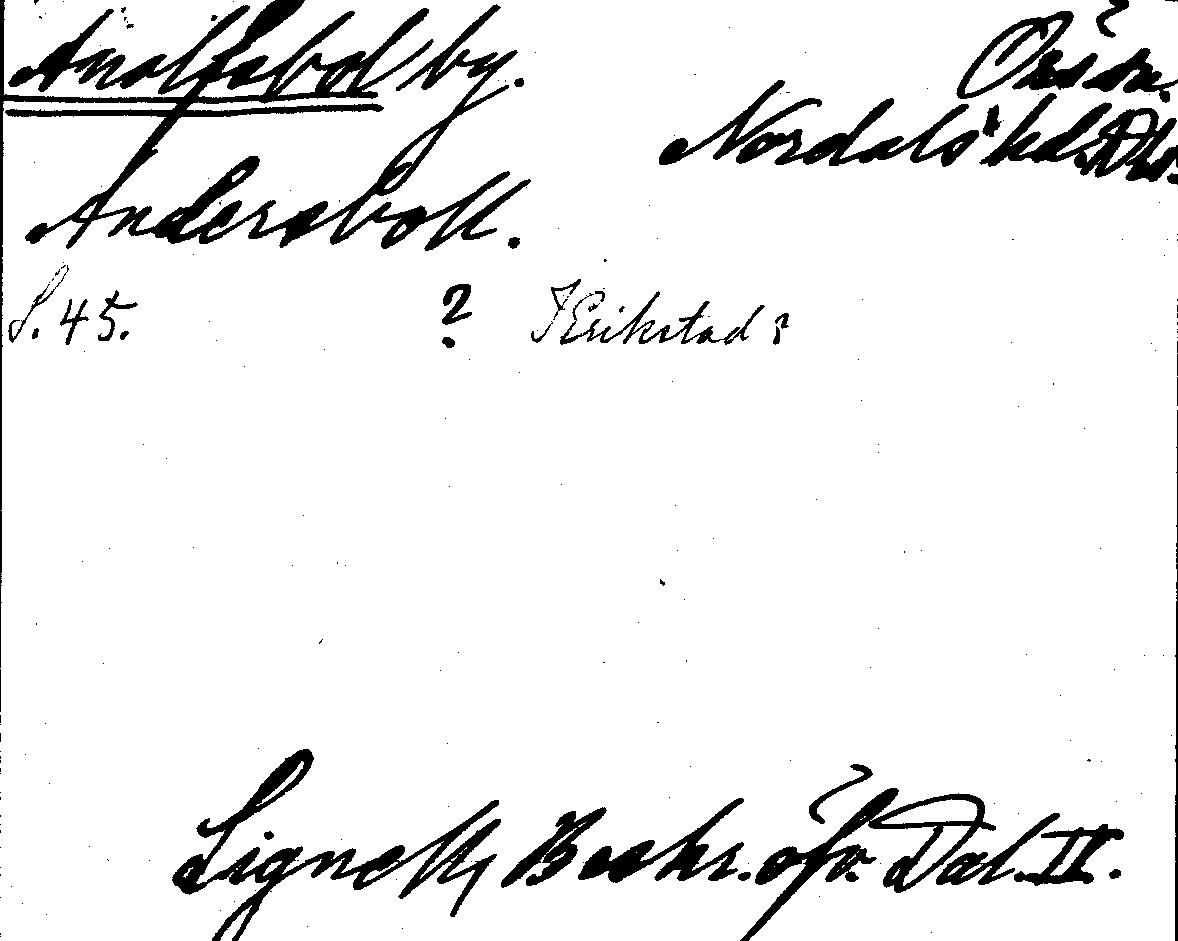 Anolfsbol by. Örs sn.
Nordals hd. Dls.
Andersboll.
S. 45. ? I Erikstad?
Lignell, Beskr. öfv. Dal. II.